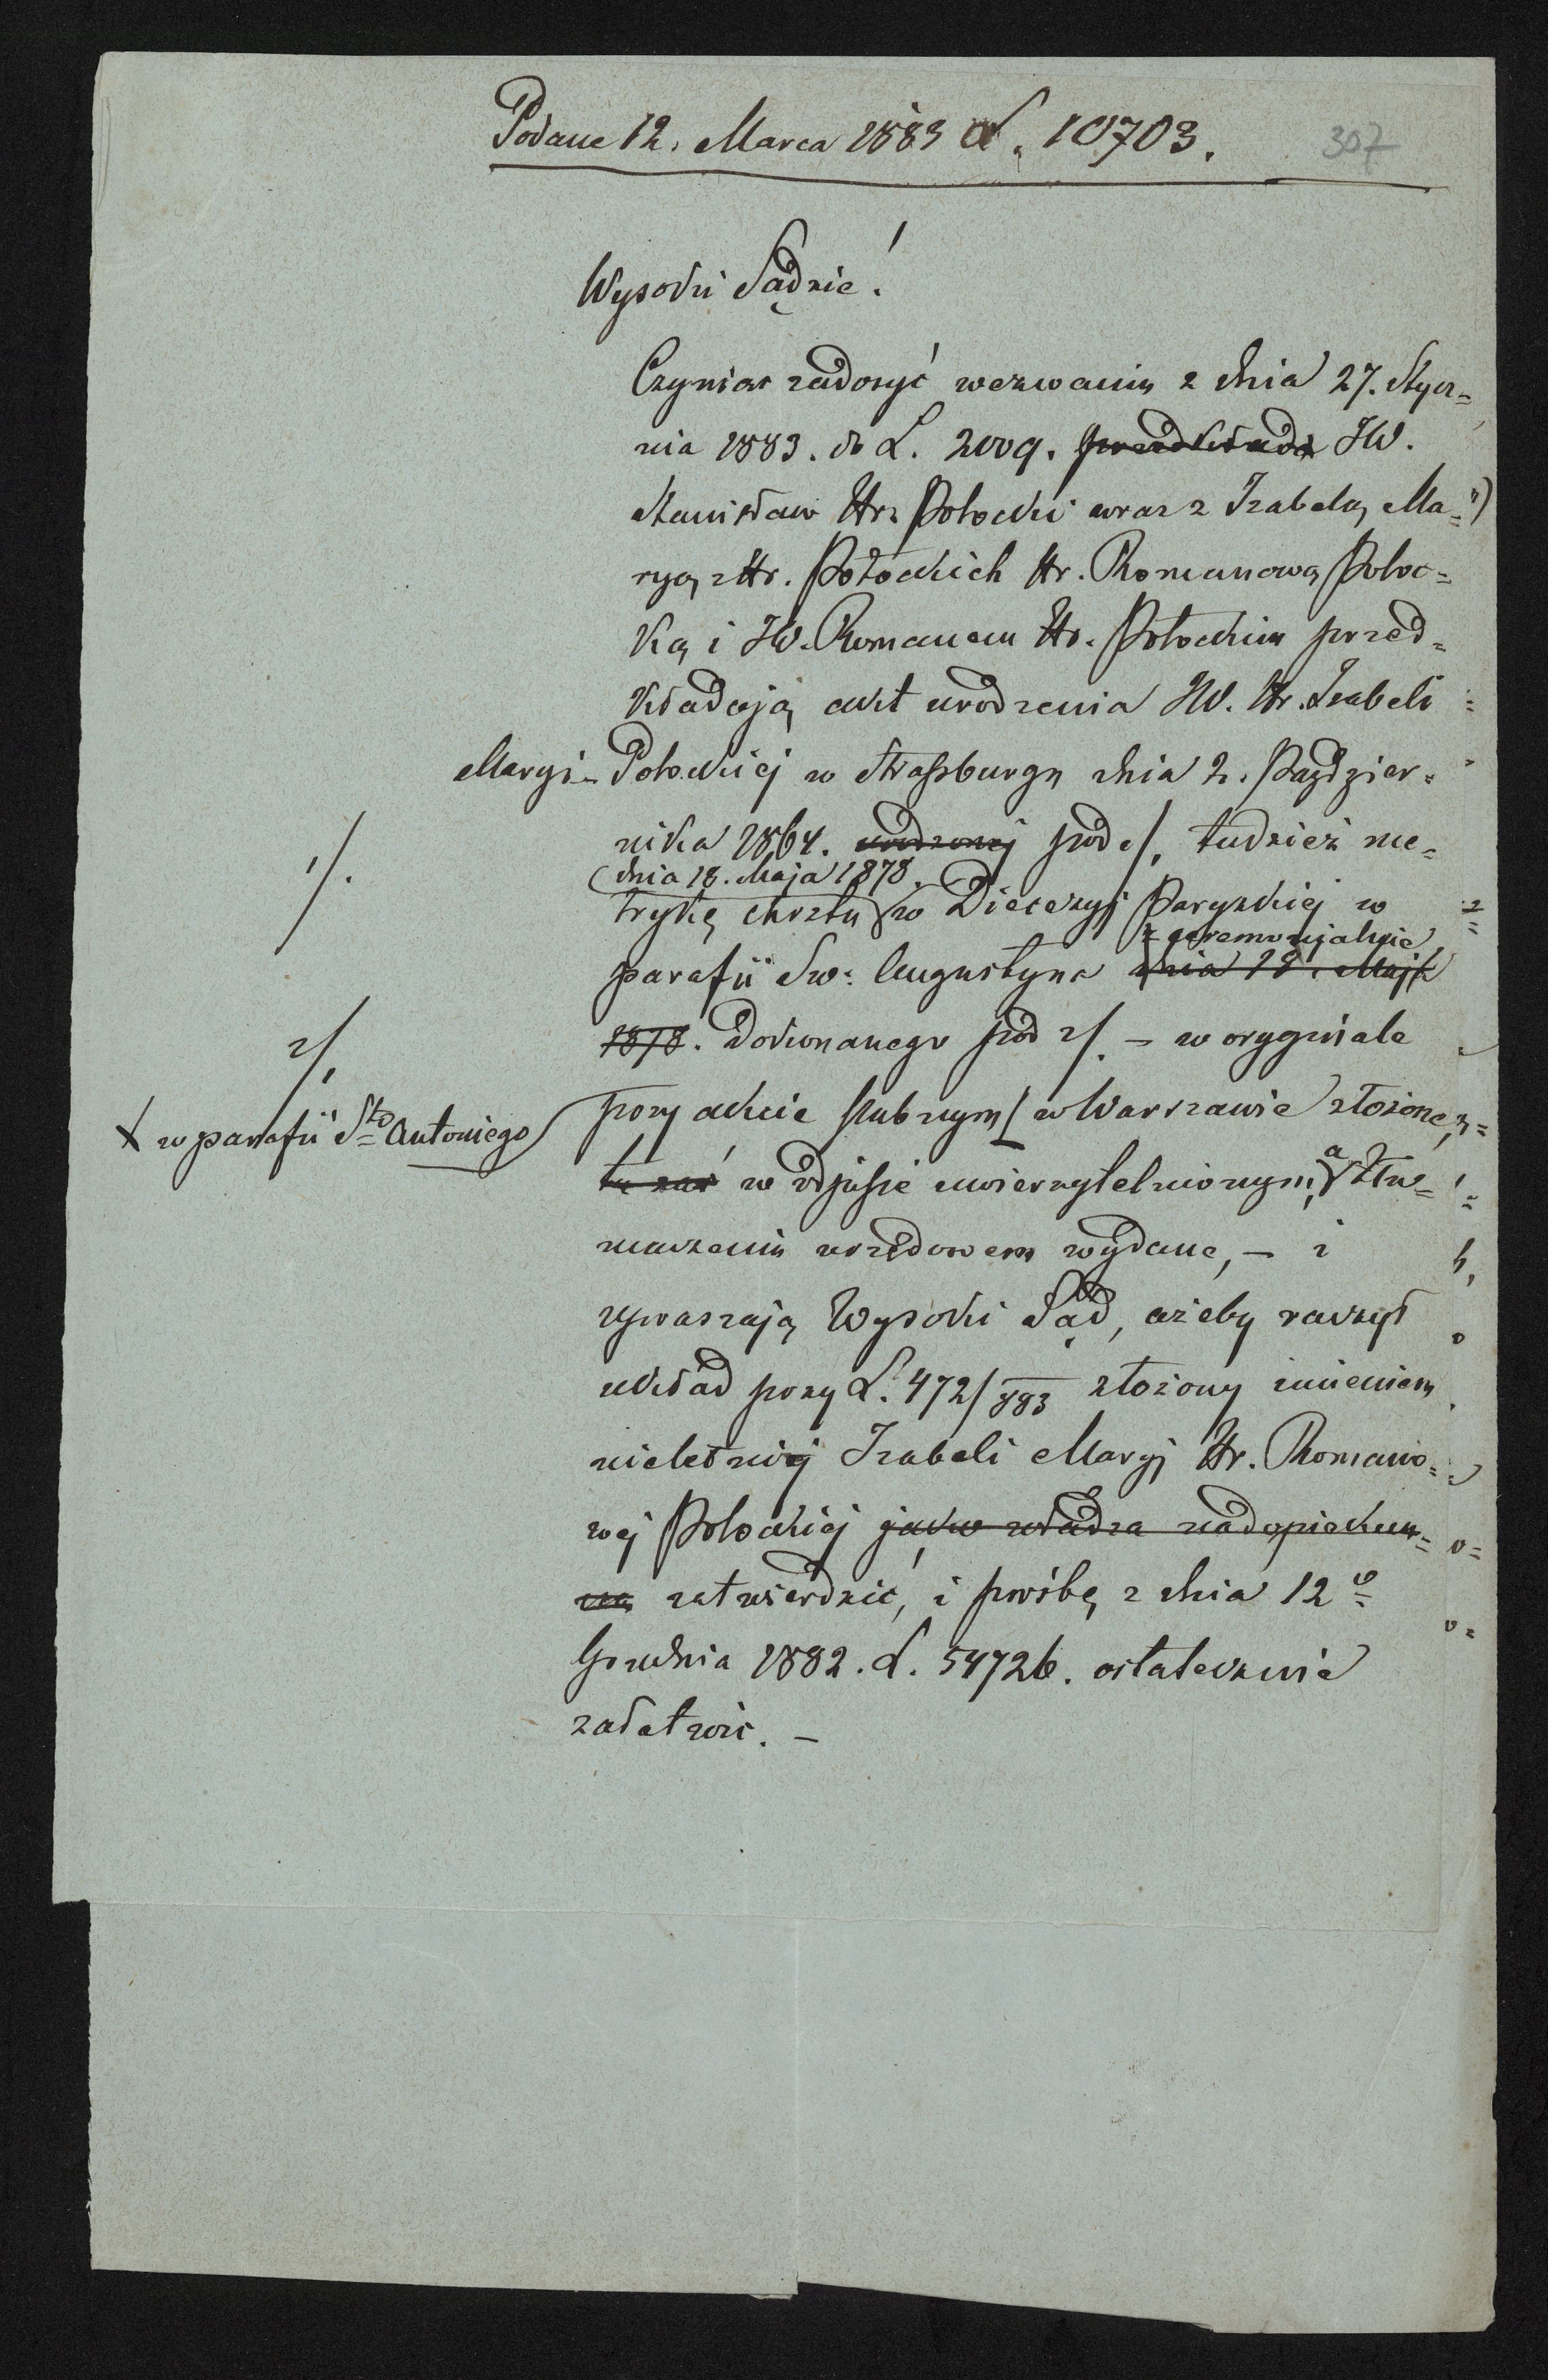 Podane 12. Marca 1883 L. 10703.
307
Wysoki Sądzie!
Czyniąc zadosyć wezwaniu z dnia 27. Stycz=
nia 1883. do L. 2009. przedkłada JW.
Stanisław Hr. Potocki wraz z Izabelą Ma=
ryą z Hr. Potockich Hr. Romanową Potoc=
ką i JW. Romanem Hr. Potockim przed=
kładają akt urodzenia JW. Hr. Izabeli
Maryi Potockiej w Strassburgu dnia 2. Paździer=
nika 1864. urodzonej pod 1/. tudzież me=
1/.
(dnia 18. Maja 1878.
trykę chrztu w Diecezyi Paryzkiej w
z ceremonijalnie
parafii Św. Augustyna dnia 18. Maja
1878. dokonanego pod 2/. – w oryginale
2/.
przy akcie ślubnym w Warszawie złożone,
X w parafii Sto Antoniego
tu zaś w odpisie uwierzytelnionym, a z tłu=
maczeniu urzędowem wydane, – i
upraszają Wysoki Sąd, ażeby raczył
układ przy L. 472/883 złożony imieniem
nieletniej Izabeli Maryi Hr. Romano=
wej Potockiej jako władza nadopiekuń=
cza zatwierdzić, i prośbę z dnia 12go
Grudnia 1882. L. 54726. ostatecznie
załatwić. –